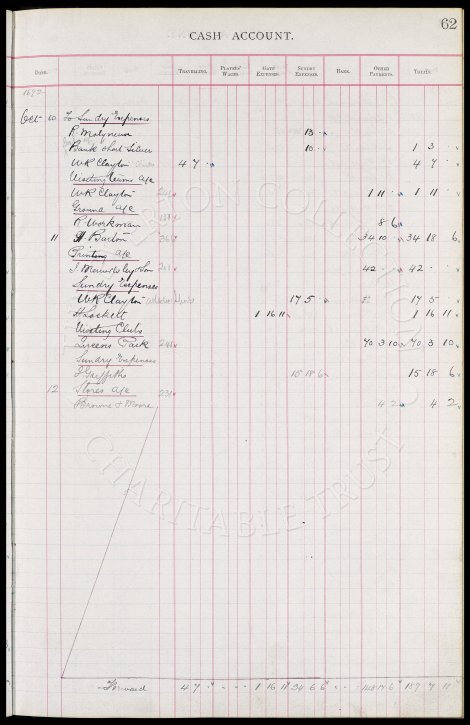 62
CASH ACCOUNT.
DATE. TRAVELLING. PLAYERS' WAGES. GATE EXPENSES. SUNDRY EXPENSES. BANK. OTHER PAYMENTS. TOTALS.
1892
Oct 10 To Sundry Expenses
R Molyneux 13
Bank short Silver 10 1 3
WR Clayton 4 7 4 7
Visiting Teams a/c
WR Clayton 1 11 1 11
Ground a/c
R Workman 8 6
11 H Barton 34 10 34 18 6
Printing a/c
42 42
Sundry Expenses
WR Clayton 17 5 17 5
H Lockett 1 16 11 1 16 11
Visiting Clubs
Queens Park 70 3 10 70 3 10
Sundry Expenses
J Griffiths 15 18 6 15 18 6
12 Stores a/c 231
Browne & Moore 4 2 4 2
Forward 4 7 1 16 11 34 6 6
CHARITABLE TRUST